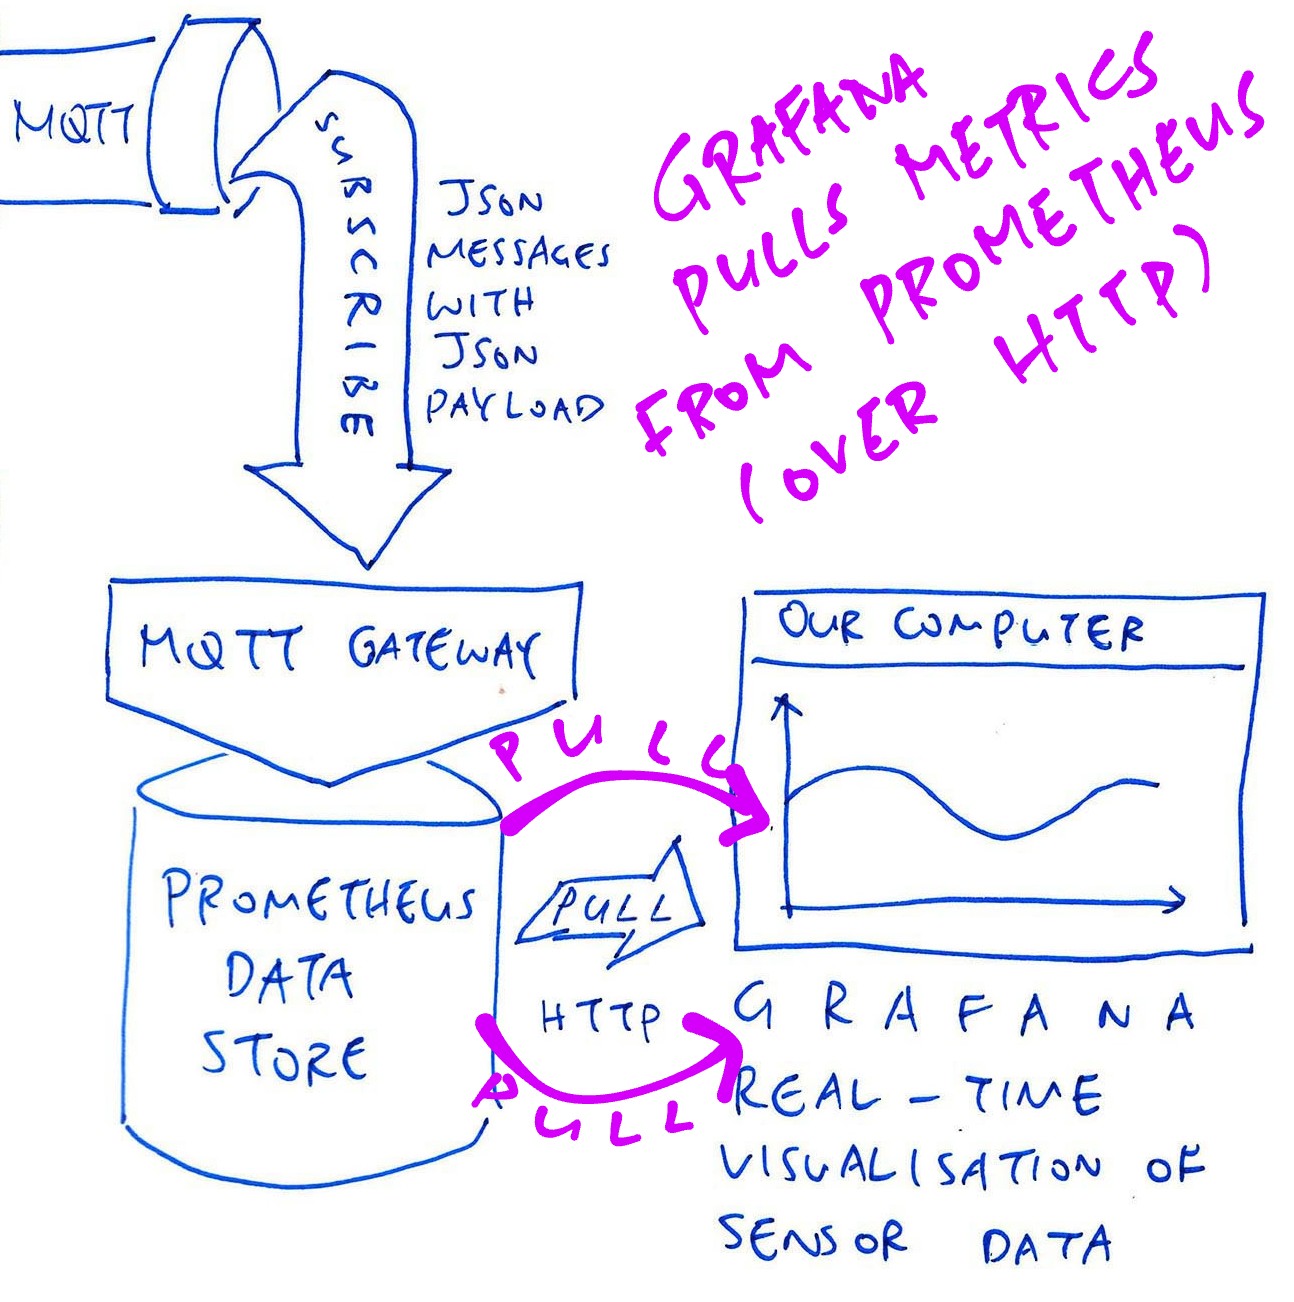 MQTT
SUBSCRIBE
JSON
MESSAGES
WITH
JSON
PAYLOAD
GRAFANA
PULLS METRICS
FROM PROMETHEUS
(OVER HTTP)
MQTT GATEWAY
PROMETHEUS
DATA
STORE
PULL
PULL
HTTP
PULL
OUR COMPUTER
GRAFANA
REAL-TIME
VISUALISATION OF
SENSOR DATA